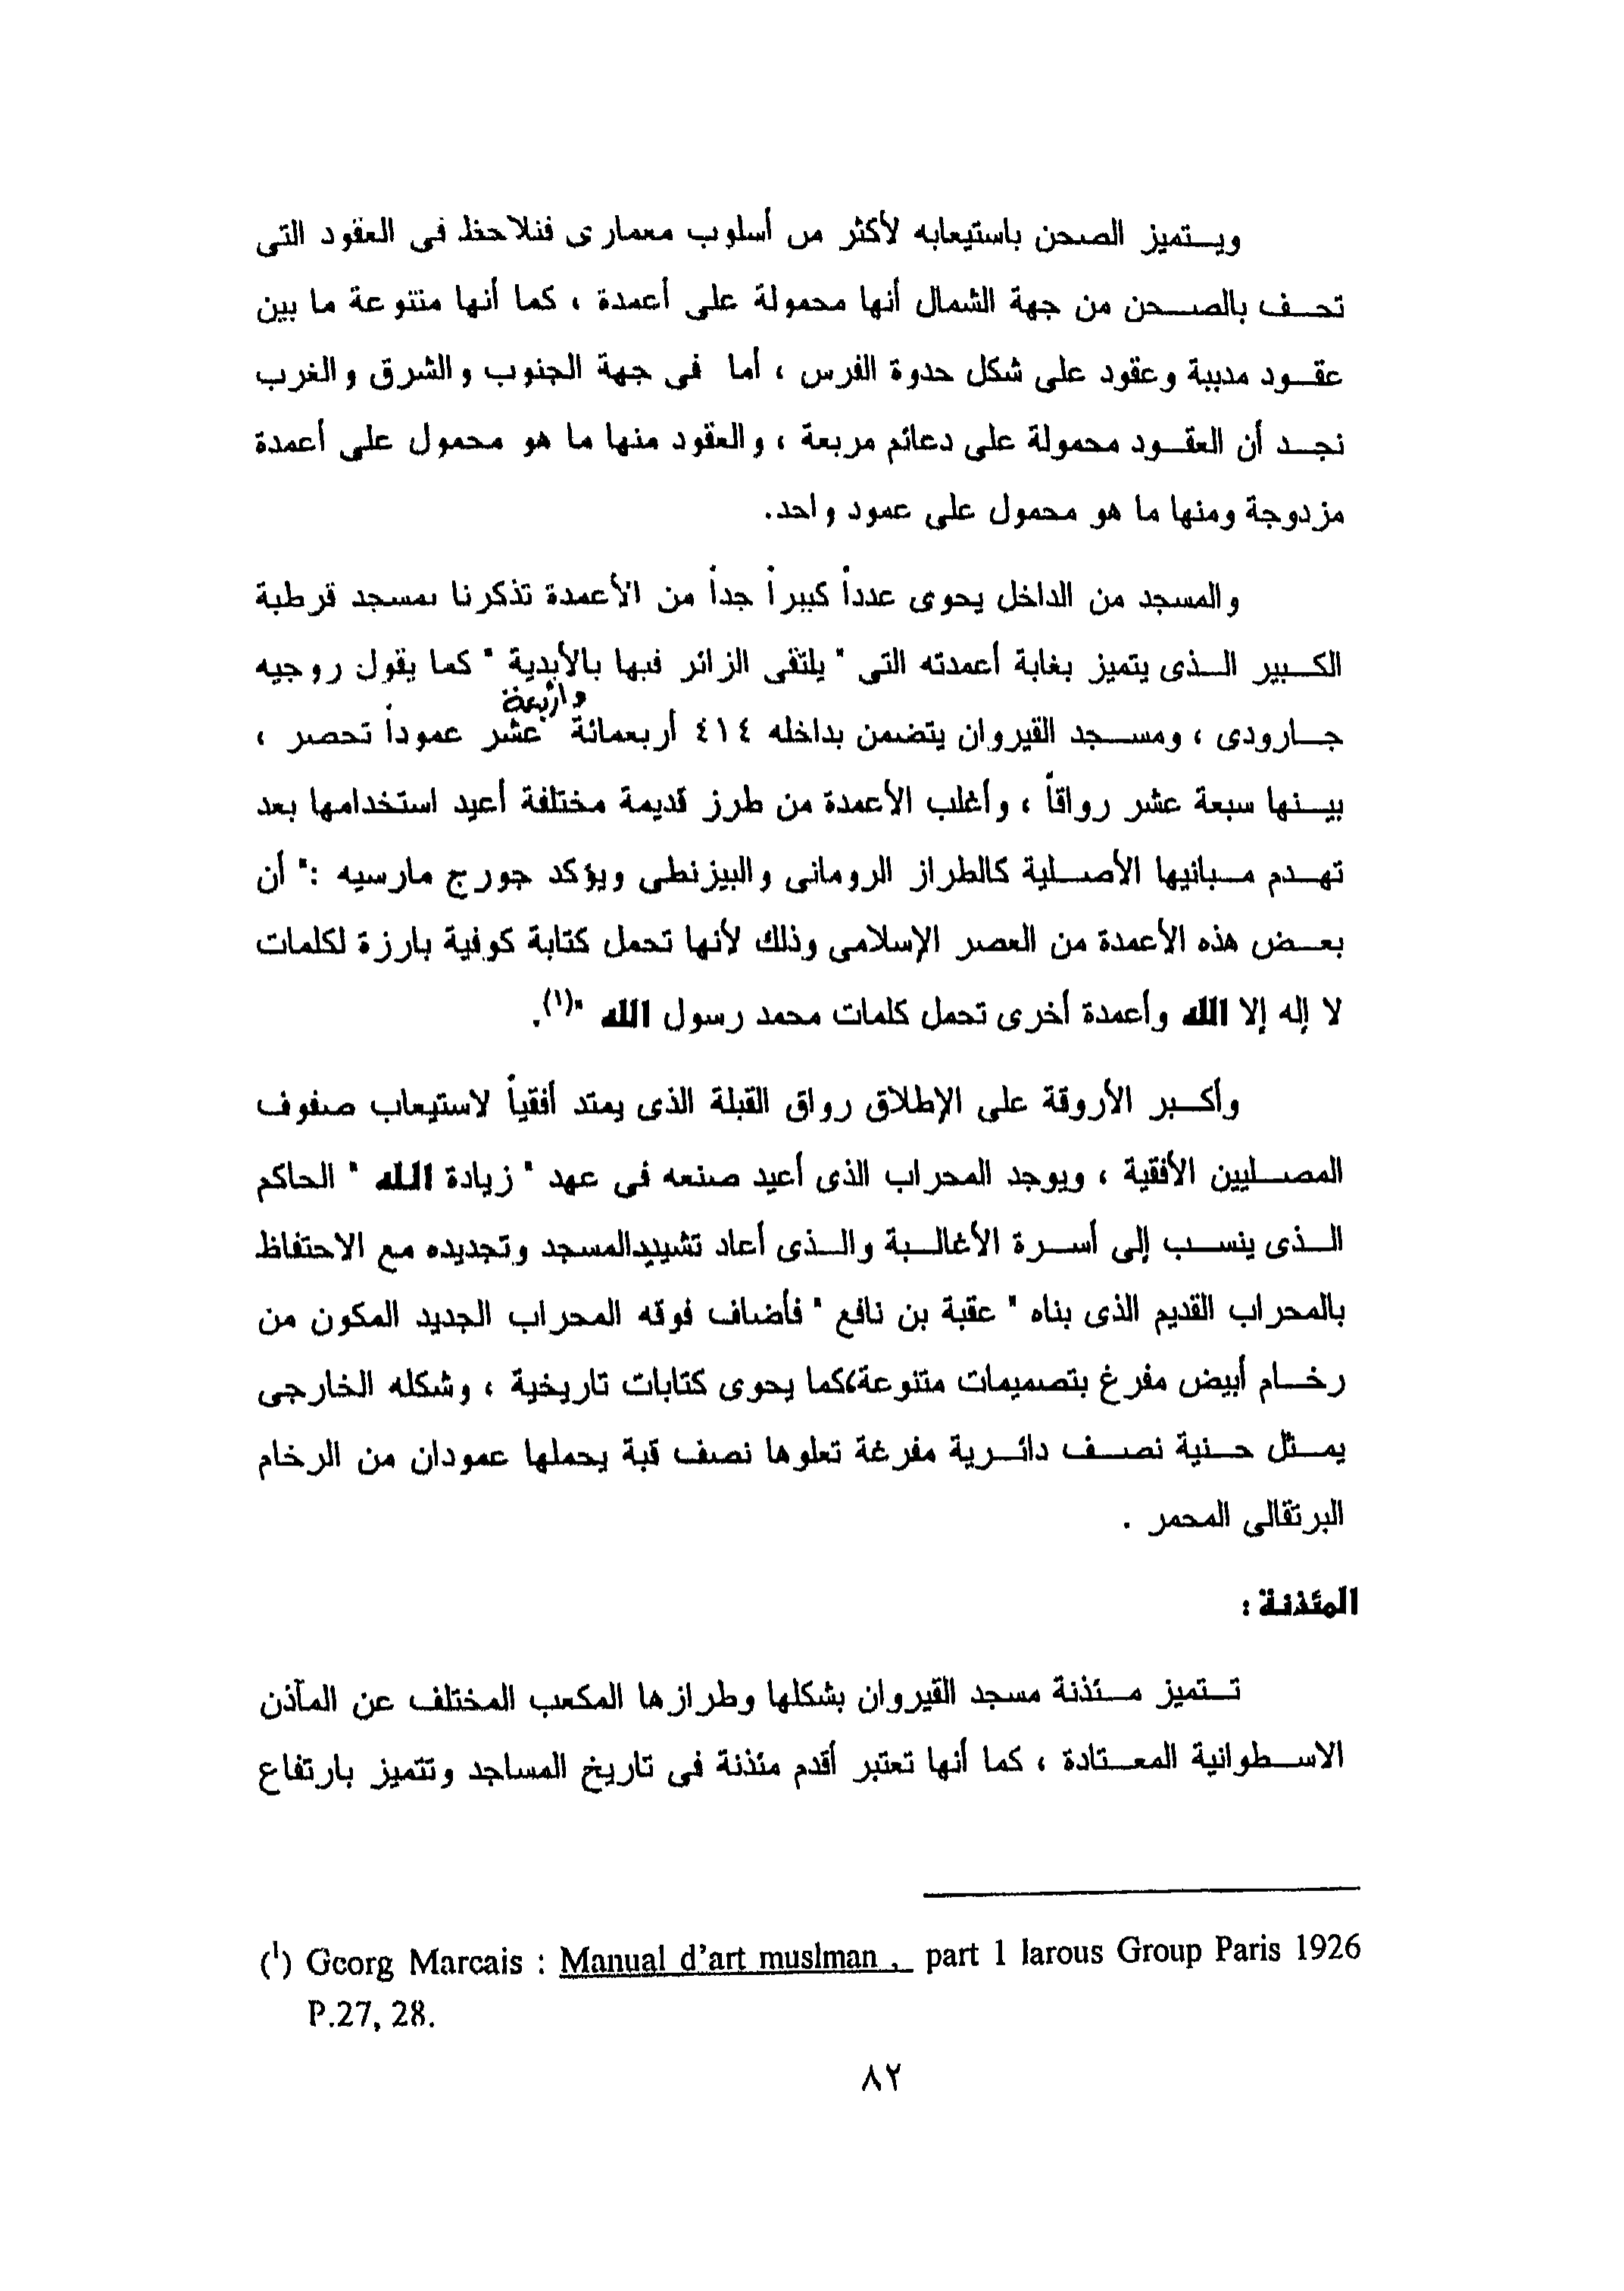 ويتميز الصحن باستيعابه لأكثر من أسلوب معمارى فنلاحظ فى العقود التى
تحف بالصحن من جهة الشمال أنها محمولة على أعمدة ، كما أنها متنوعة ما بين
عقود مدببة وعقود على شكل حدوة الفرس ، أما فى جهة الجنوب والشرق والغرب
نجد أن العقود محمولة على دعائم مربعة ، والعقود منها ما هو محمول على أعمدة
مزدوجة ومنها ما هو محمول على عمود واحد.
والمسجد من الداخل يحوى عدداً كبيراً جداً من الأعمدة تذكرنا بمسجد قرطبة
الكبير الذى يتميز بغابة أعمدته التى " يلتقى الزائر فيها بالأبدية " كما يقول روجيه
جارودى ، ومسجد القيروان يتضمن بداخله ٤١٤ أربعمائة وأربعة عشر عموداً تحصر ،
بينها سبعة عشر رواقاً ، وأغلب الأعمدة من طرز قديمة مختلفة أعيد استخدامها بعد
تهدم مبانيها الأصلية كالطراز الرومانى والبيزنطى ويؤكد جورج مارسيه :" أن
بعض هذه الأعمدة من العصر الإسلامى وذلك لأنها تحمل كتابة كوفية بارزة لكلمات
لا إله إلا الله وأعمدة أخرى تحمل كلمات محمد رسول الله "(١).
وأكبر الأروقة على الإطلاق رواق القبلة الذى يمتد أفقياً لاستيعاب صفوف
المصليين الأفقية ، ويوجد المحراب الذى أعيد صنعه فى عهد " زيادة الله " الحاكم
الذى ينسب إلى أسرة الأغالبة والذى أعاد تشييدالمسجد وتجديده مع الاحتفاظ
بالمحراب القديم الذى بناه " عقبة بن نافع " فأضاف فوقه المحراب الجديد المكون من
رخام أبيض مفرغ بتصميمات متنوعة،كما يحوى كتابات تاريخية ، وشكله الخارجى
يمثل حنية نصف دائرية مفرغة تعلوها نصف قبة يحملها عمودان من الرخام
البرتقالى المحمر .
المئذنة :
تتميز مئذنة مسجد القيروان بشكلها وطرازها المكعب المختلف عن المآذن
الاسطوانية المعتادة ، كما أنها تعتبر أقدم مئذنة فى تاريخ المساجد وتتميز بارتفاع
(١) Georg Marcais : Manual d'art muslman , part 1 larous Group Paris 1926
P.27, 28.
٨٢